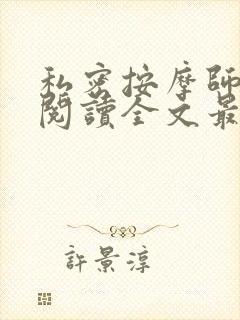 私密按摩師
閱讀全文最
許景淳